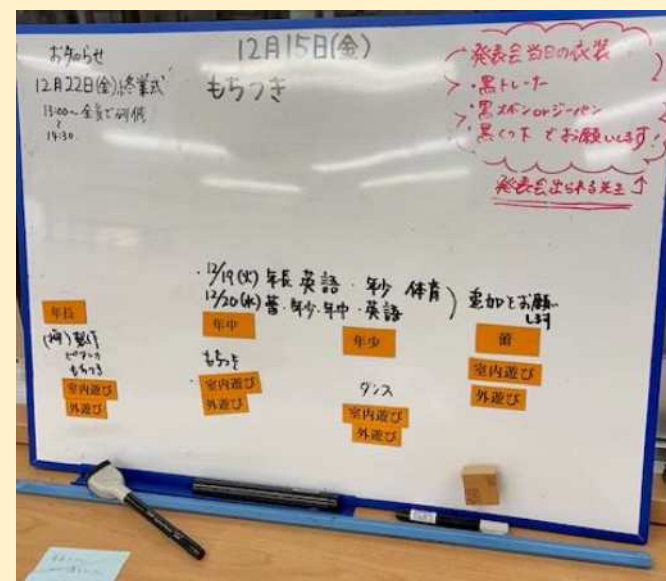 お知らせ
12月22日(金)終業式
13:00〜全員で研修
14:30
12月15日(金)
もちつき
発表会当日の衣装
・黒トレーナー
・黒ズボンorジーパン
・黒くつ下でお願いします!
発表会出られる先生↑
・12/19(火) 年長 英語・年少 体育
12/20(水) 蕾・年少・年中・英語
追加をお願い
します
年長
製作
もちつき
室内遊び
外遊び
年中
もちつき
室内遊び
外遊び
年少
ダンス
室内遊び
外遊び
蕾
室内遊び
外遊び